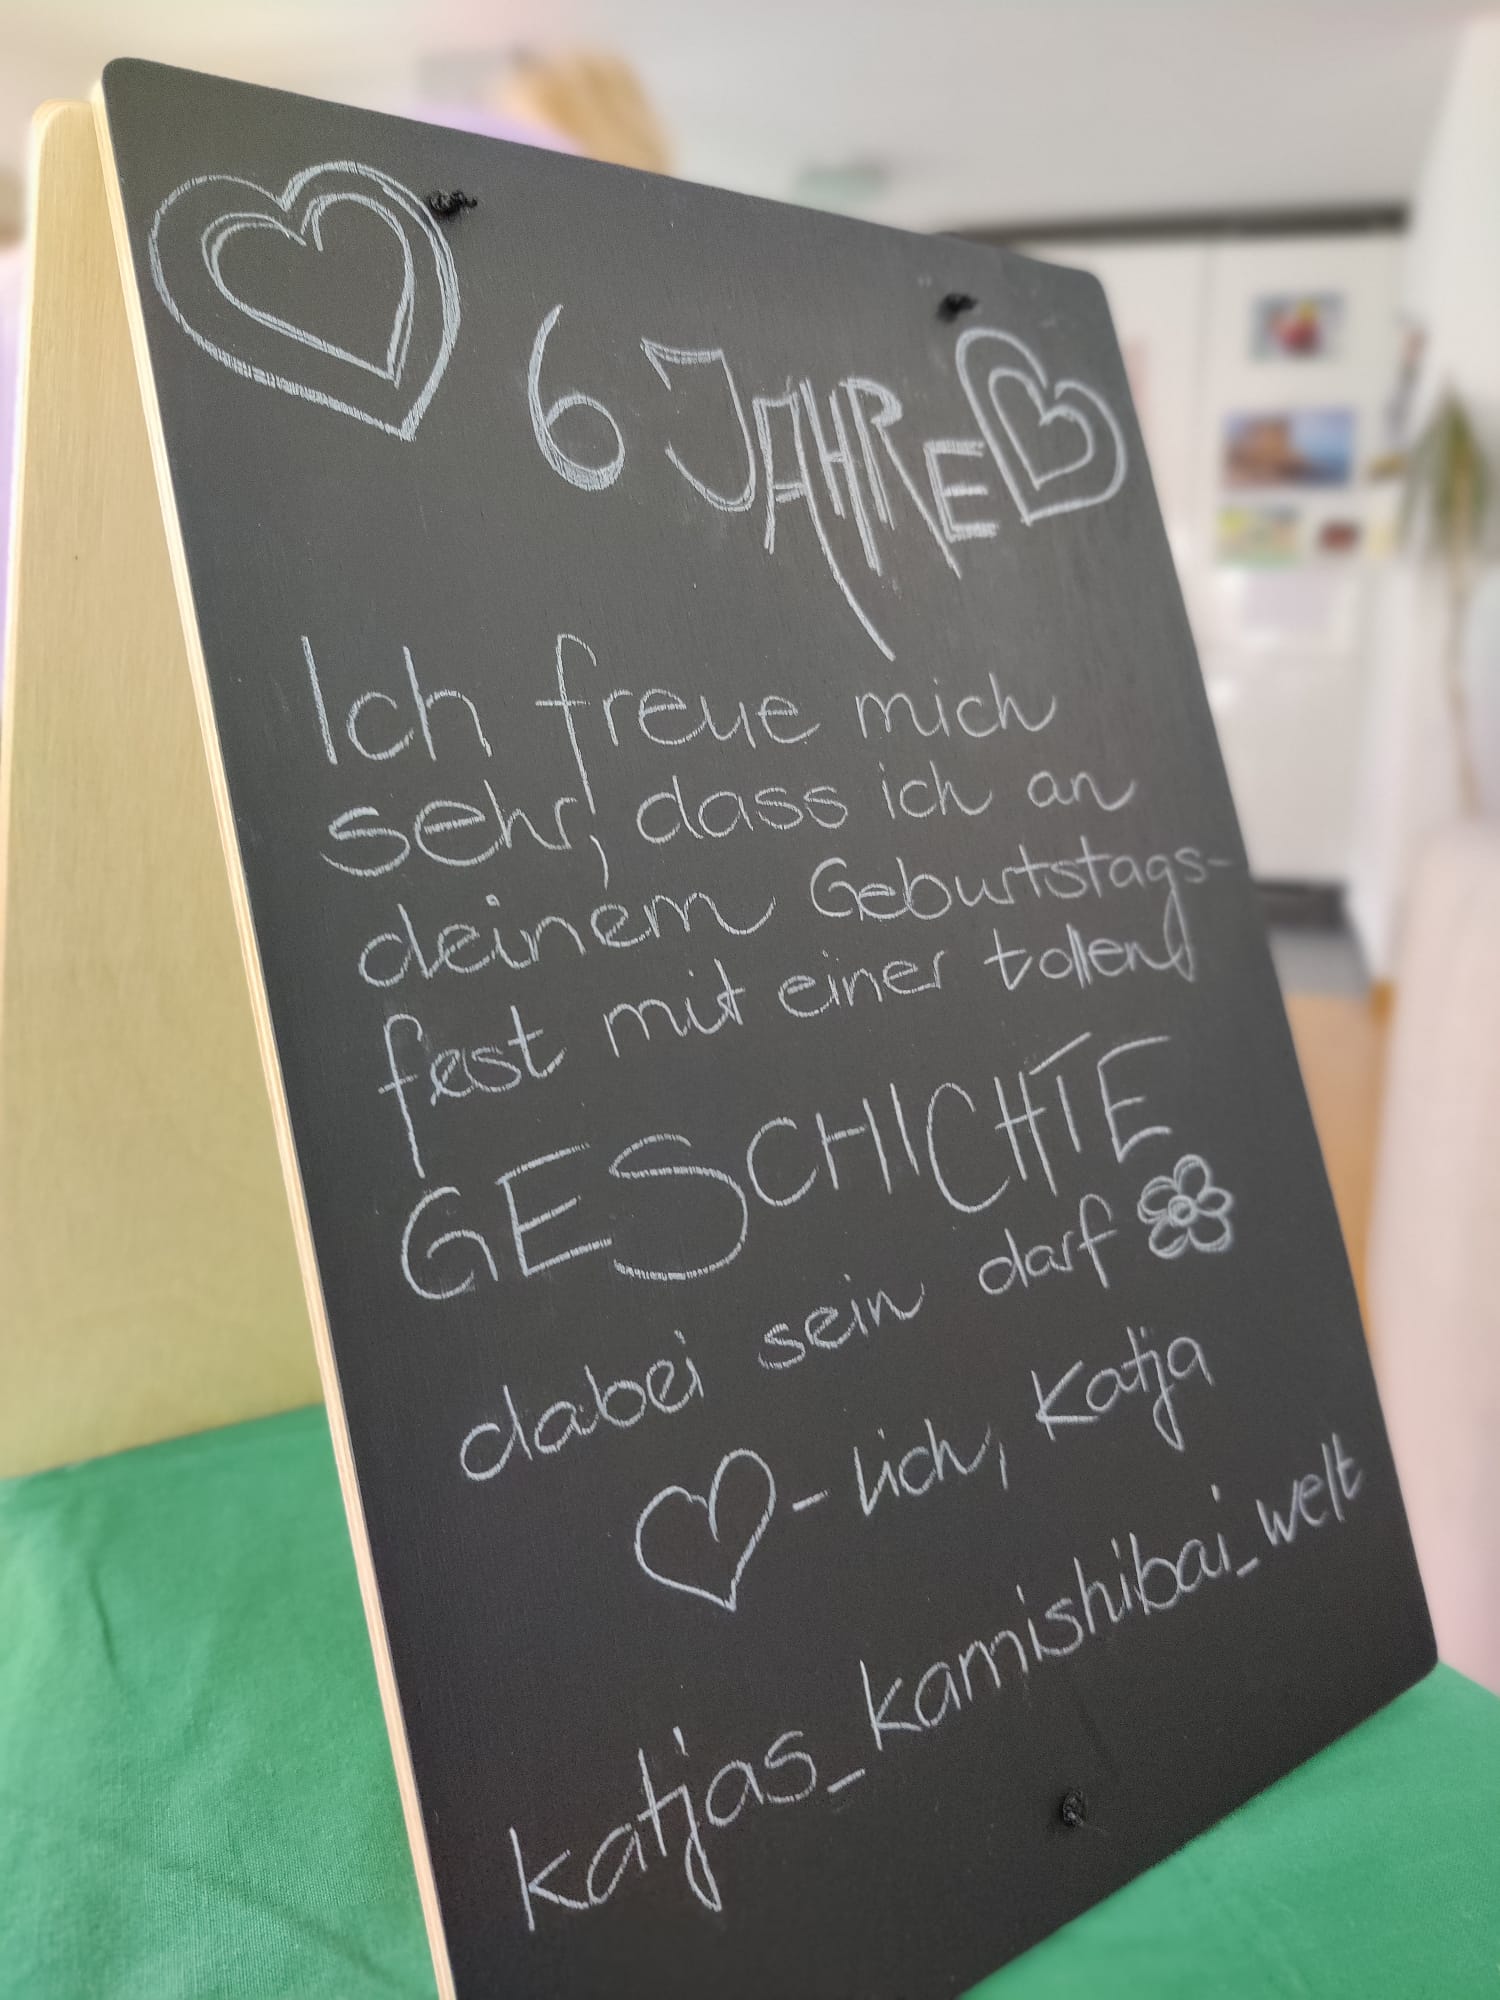 6 JAHRE
Ich freue mich
sehr, dass ich an
deinem Geburtstags-
fest mit einer tollen
GESCHICHTE
dabei sein darf
♡-lich, Katja
katjas_kamishibai_welt